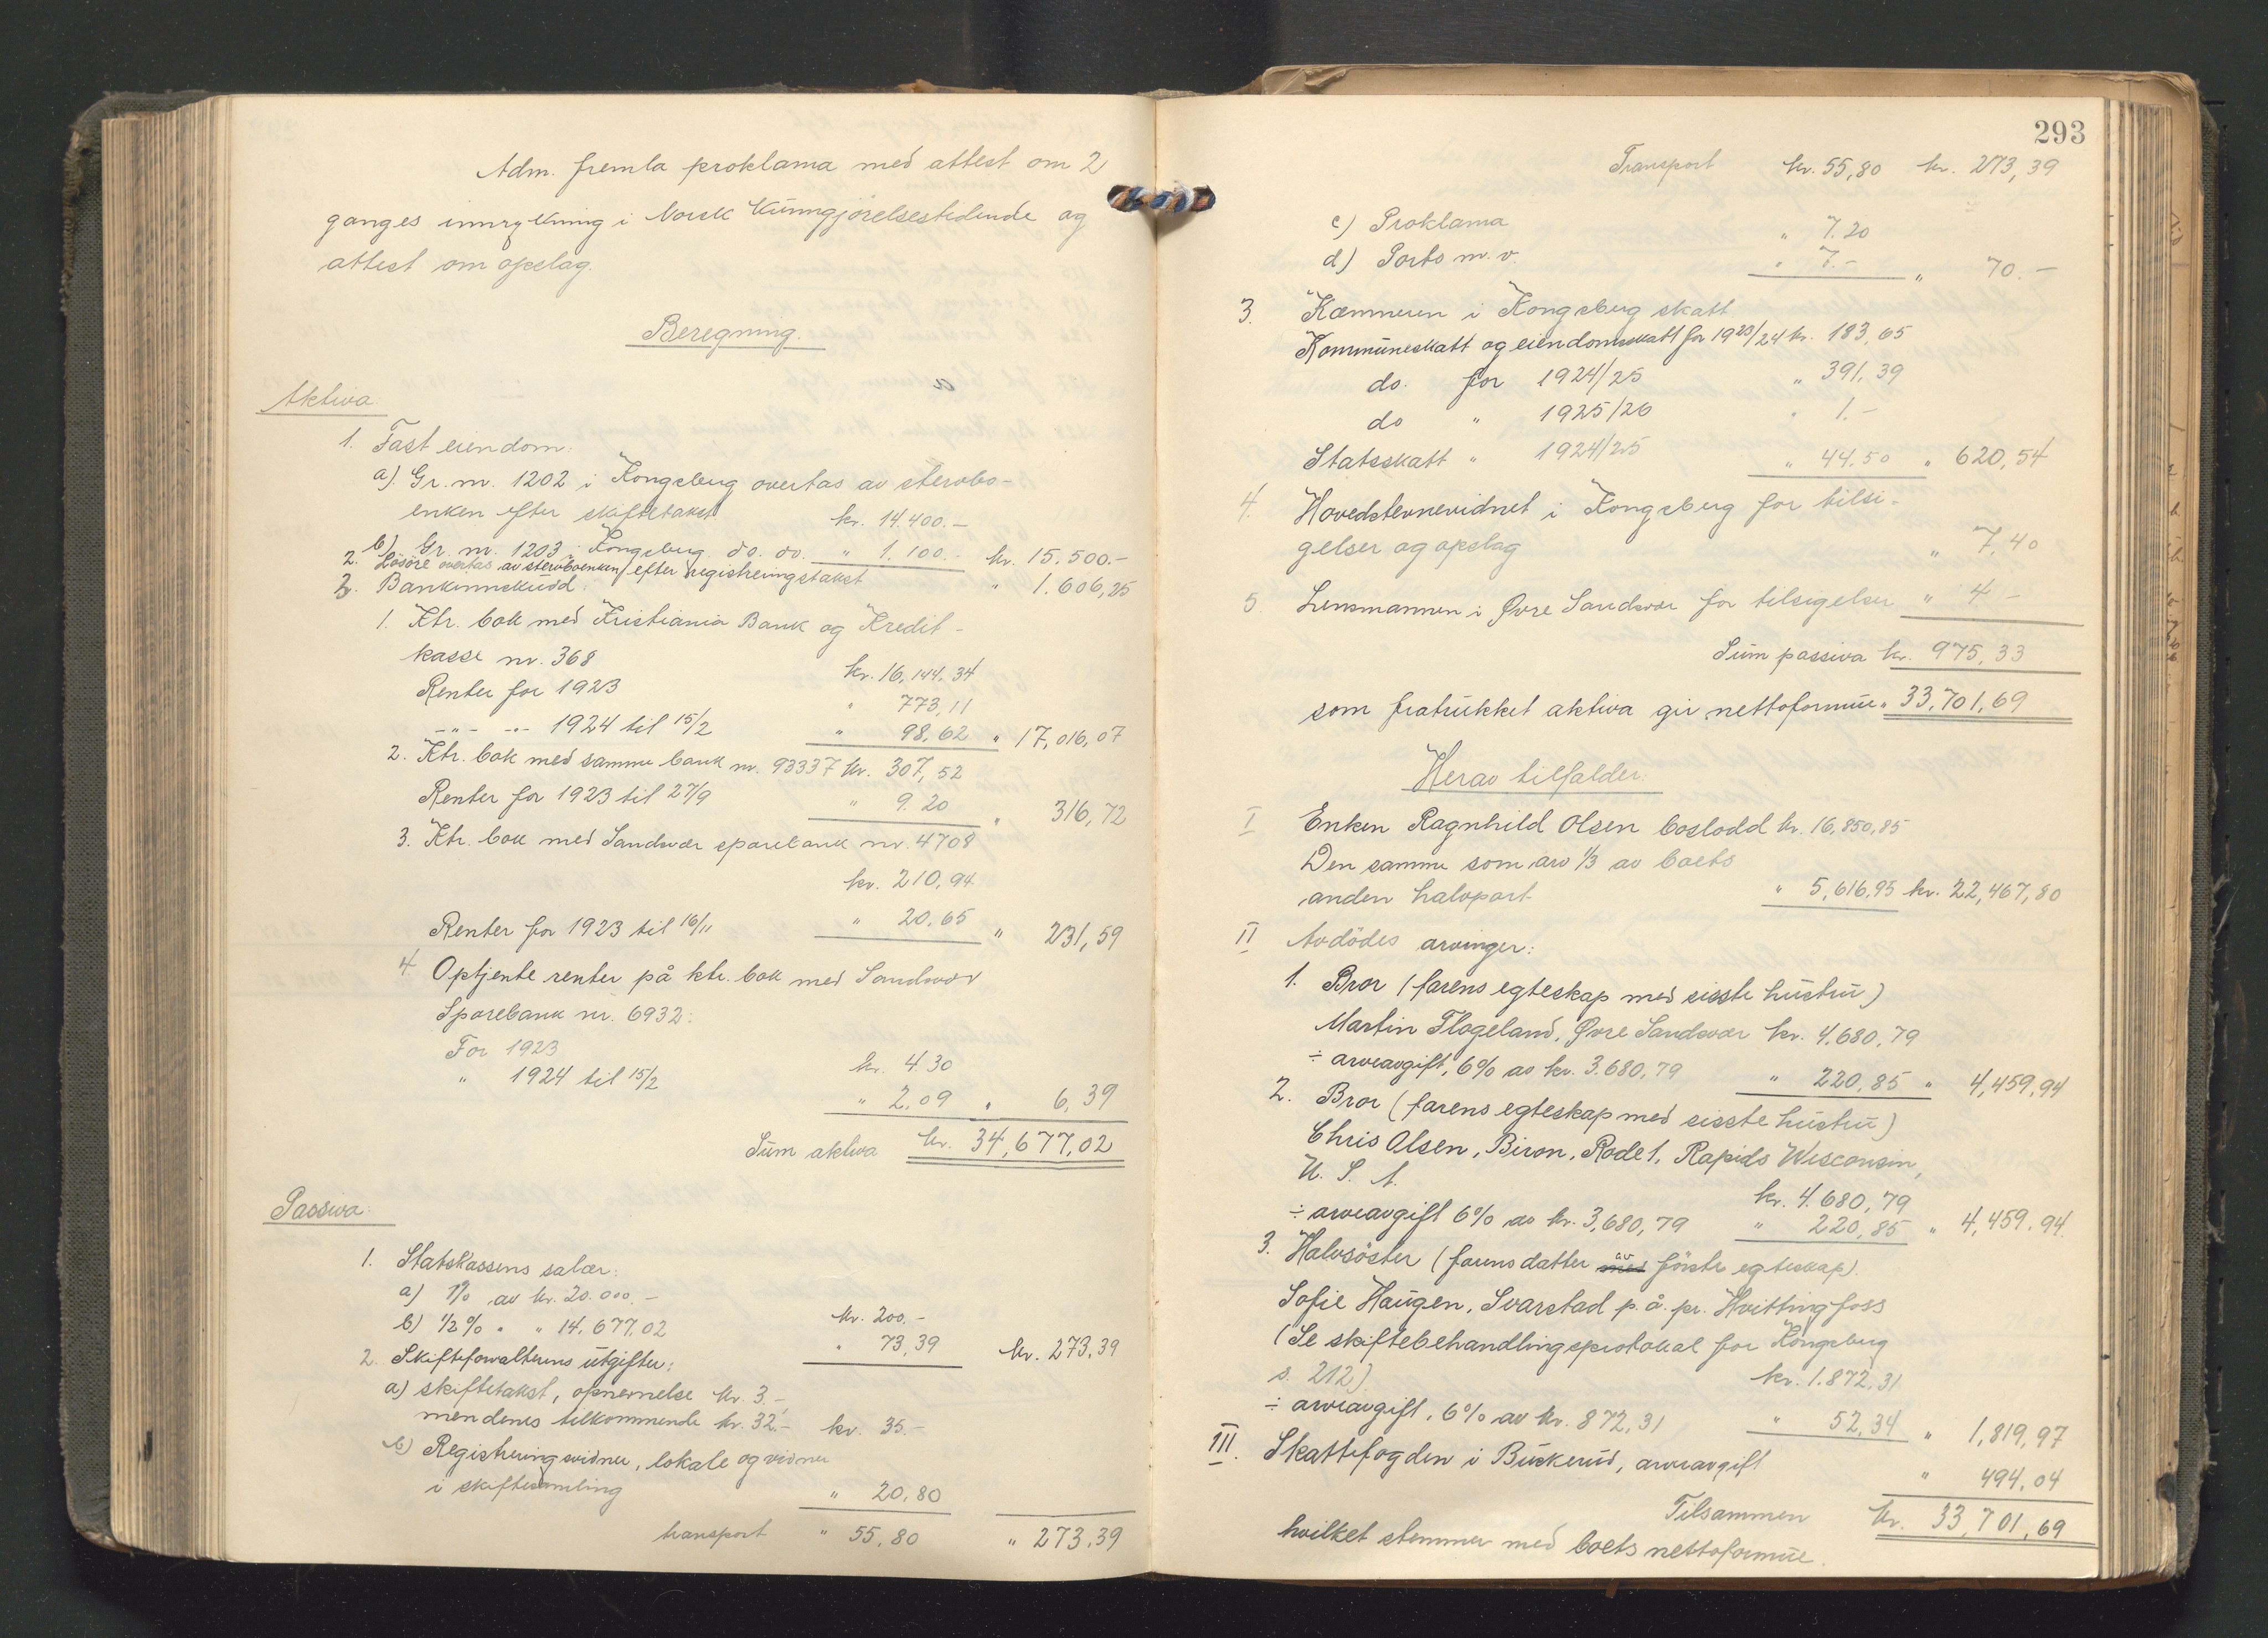 Adm. fremla proklama med attest om 2
ganges innrykning i Norsk Kunngjørelsestidende og
attest om opslag.
Beregning.
Aktiva.
1. Fast eiendom:
a). Gr. nr. 1202 i Kongsberg overtas av stervbo-
enken efter skiftetakst kr. 14.400.-
b) Gr. nr. 1203 i Kongsberg do. do. " 1.100.- kr. 15.500.-
2. Løsöre overtas av stervboenken efter registreringstakst " 1.606,25
3. Bankinnskudd:
1. Ktr. bok med Kristiania Bank og Kredit-
kasse nr. 368 kr. 16,144.34
Renter for 1923 " 773,11
-"- -"- 1924 til 15/2 " 98,62 " 17,016,07
2. Ktr. bok med samme bank nr. 93337 kr. 307,52
Renter for 1923 til 27/9 " 9.20 " 316,72
3. Ktr. bok med Sandsvær sparebank nr. 4708
kr. 210,94
Renter for 1923 til 16/11 " 20,65 " 231,59
4. Optjente renter på ktr. bok med Sandsvær
Sparebank nr. 6932:
For 1923 kr. 4.30
" 1924 til 15/2 " 2,09 " 6,39
Sum aktiva kr. 34,677,02
Passiva:
1. Statskassens salær:
a) 1% av kr. 20.000.- kr. 200.-
b) 1/2% " " 14.677,02 " 73,39 kr. 273,39
2. Skifteforvalterens utgifter:
a) skiftetakst, opnevnelse kr. 3.-,
mendenes tilkommende kr. 32.- kr. 35.-
b) Registreringsvidner, lokale og vidner
i skiftesamling " 20,80
transport " 55,80 " 273,39
293
Transport kr. 55,80 kr. 273,39
c) Proklama " 7.20
d) Porto m.v. " 7.- " 70.-
3. Kæmneren i Kongsberg skatt
Kommuneskatt og eiendomsskatt for 1923/24 kr. 183,65
do. for 1924/25 " 391,39
do " 1925/26 " 1.-
Statsskatt " 1924/25 " 44.50 " 620,54
4. Hovedstevnevidnet i Kongsberg for tilsi-
gelser og opslag " 7,40
5. Lensmannen i Øvre Sandsvær for tilsigelser " 4 -
Sum passiva kr. 975,33
som fratrukket aktiva gir nettoformue " 33,701,69
Herav tilfalder:
I Enken Ragnhild Olsen boslodd kr. 16,850,85
Den samme som arv 1/3 av boets
anden halvpart " 5,616,95 kr. 22,467,80
II Avdödes arvinger:
1. Bror (farens egteskap med sisste hustru)
Martin Flogeland, Øvre Sandsvær kr. 4.680,79
÷ arveavgift, 6% av kr. 3.680,79 " 220,85 " 4,459,94
2. Bror (farens egteskap med sisste hustru)
Chris Olsen, Biron, Rode 1, Rapids Wisconsin,
U. S. A. kr. 4.680,79
÷ arveavgift 6% av kr. 3,680,79 " 220,85 " 4,459.94.
3. Halvsöster (farens datter med av förste egteskap).
Sofie Haugen, Svarstad p. å. pr. Hvittingfoss
(Se skiftebehandlingsprotokal for Kongsberg
s. 212) kr. 1.872,31
÷ arveavgift, 6% av kr. 872,31 " 52,34 " 1,819,97
III. Skattefogden i Buskerud, arveavgift " 494,04
Tilsammen kr. 33,701,69
hvilket stemmer med boets nettoformue.